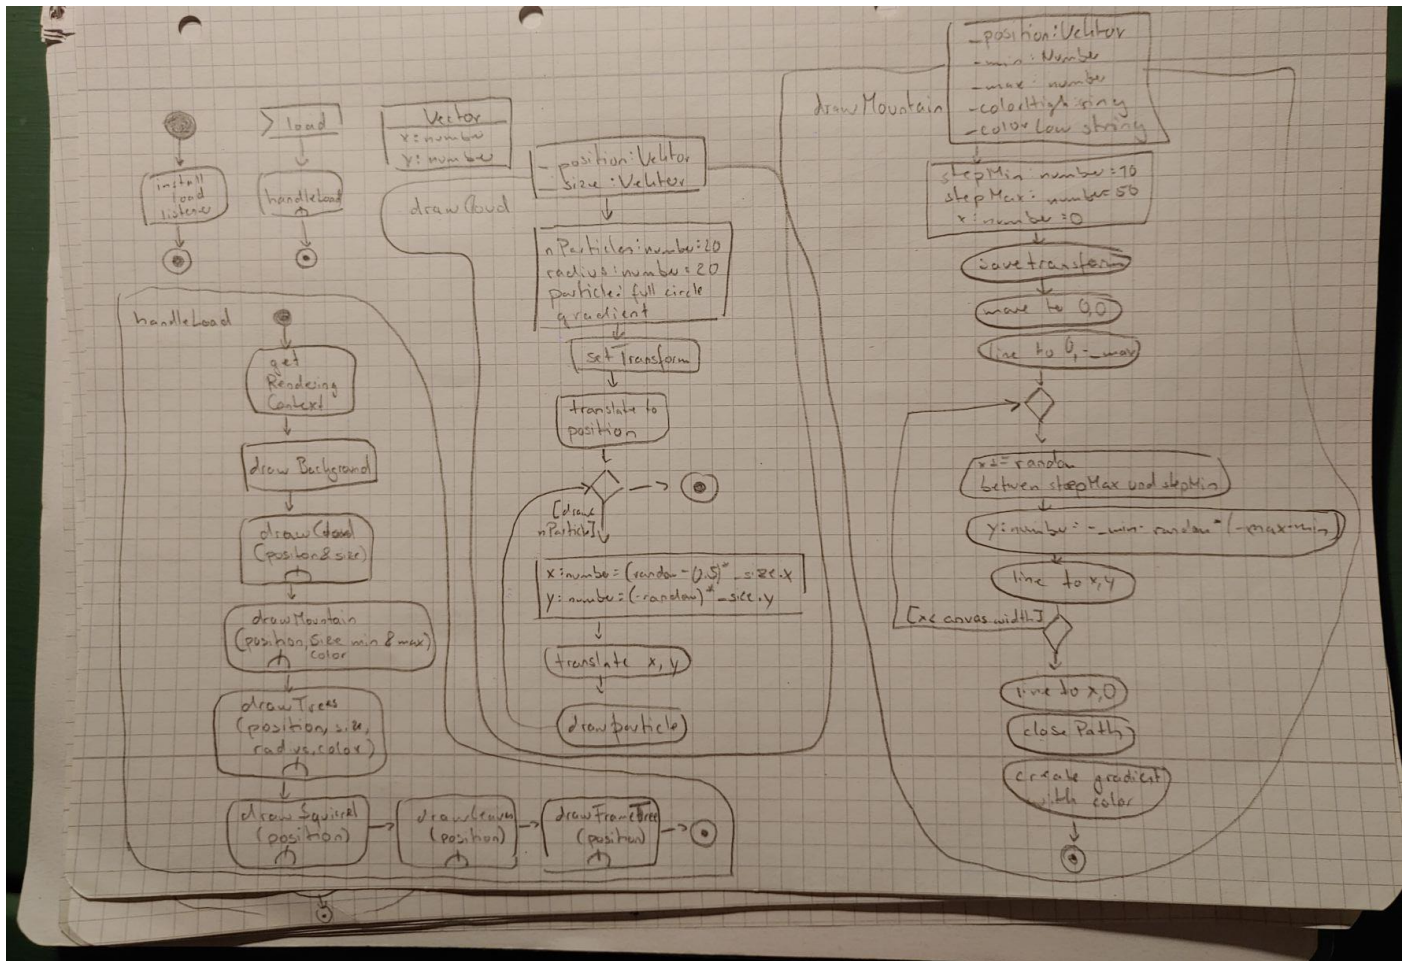 load
install
load
listener
handleLoad
Vector
x:number
y:number
handleLoad
get
Rendering
Context
draw Background
drawCloud
(position & size)
drawMountain
(position, size, min & max)
color
drawTrees
(position, size,
radius, color)
drawSquirrel
(position)
drawLeaves
(position)
drawFrameTree
(position)
drawCloud
_position:Vektor
size:Vektor
nParticles:number=20
radius:number=20
particle: full circle
gradient
setTransform
translate to
position
nParticle]
x:number=(random-0.5)*_size.x
y:number=(-random)*_size.y
translate x, y
drawparticle
drawMountain
_position:Vektor
-min:Number
-max:number
-colorHigh:
-colorLow string
stepMin:number=10
stepMax:number=50
x:number=0
savetransform
move to 0,0
line to 0, -_max
x+=random
between stepMax und stepMin
y:number=-_min-random*(-max-min
line to x,y
[x< canvas.width]
line to x,0
closePath
create gradient
with color